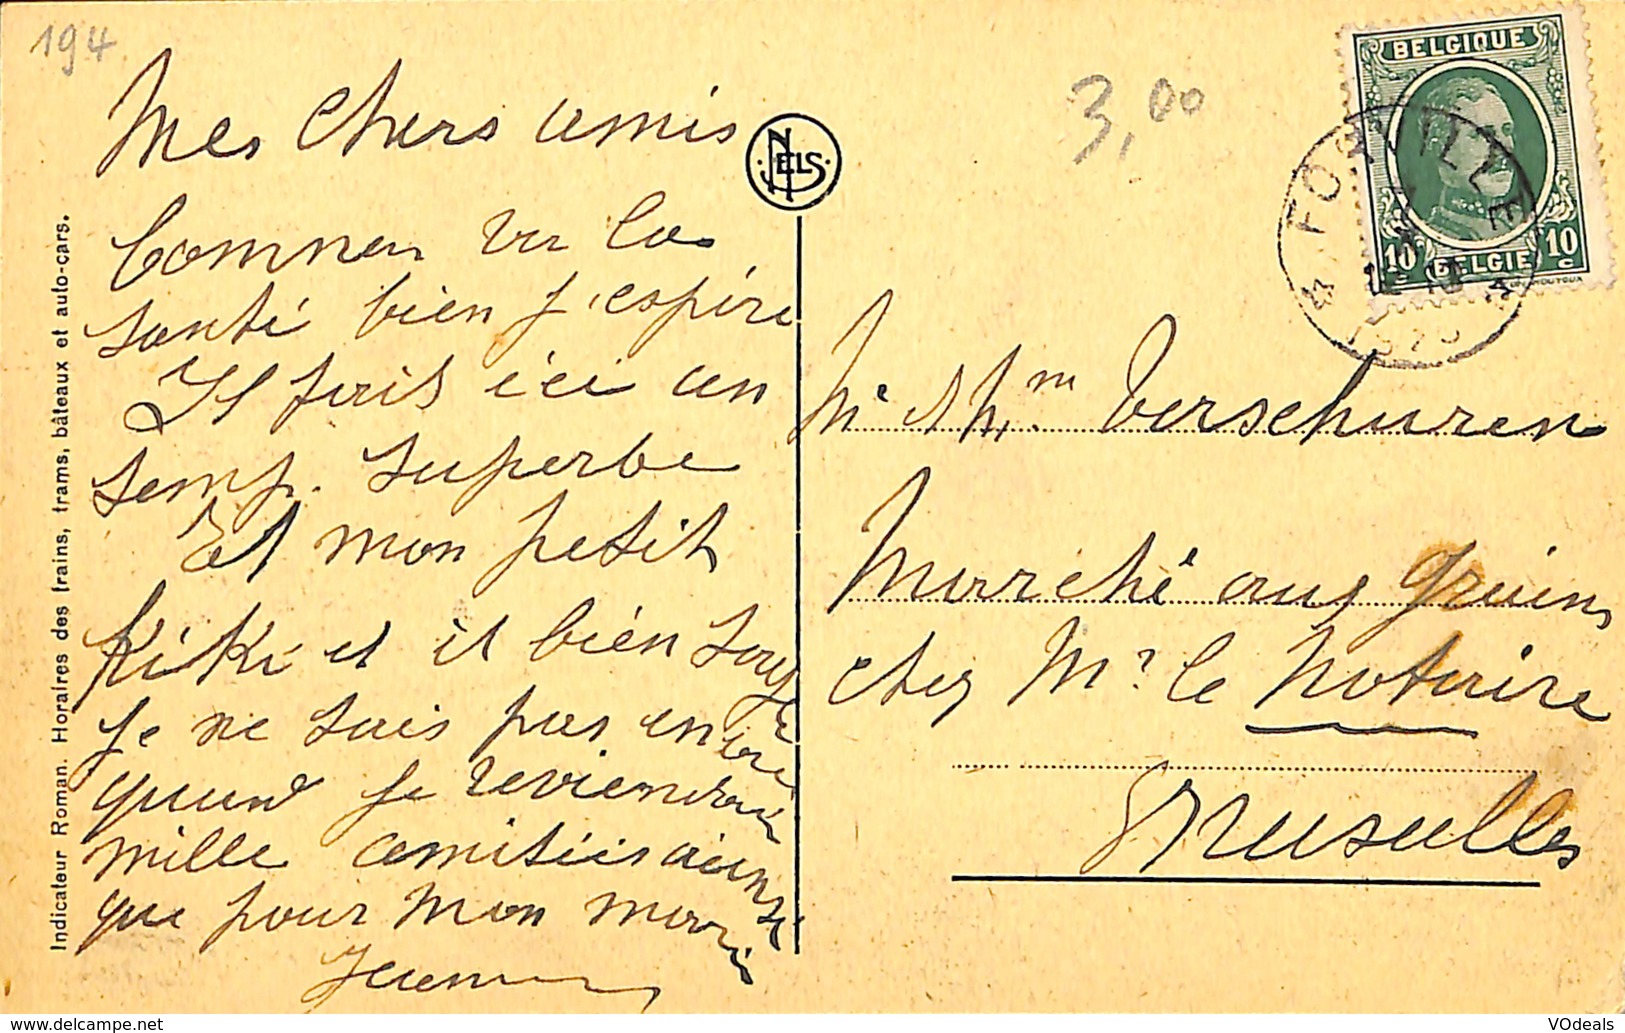 194
3,00
Mes Chers amis
Commen va la
santé bien j'espère
Il fais ici un
temp. superbe
Et mon petit
Kiki et il bien
je ne sais pas encore
quand je reviendrai
mille amitiés ainsi
que pour mon mari
NELS
Indicateur Roman. Horaires des trains, trams, bâteaux et auto-cars.
BELGIQUE
10 BELGIE 10
c
Mr & Mm Verschuren
Marché aux Grains
chez Mr le Notaire
Bruxelles
VOdeals
© delcampe.net